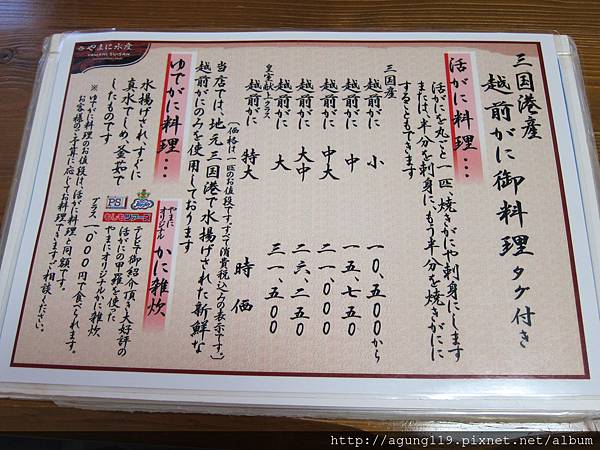 やまに水産
YAMANI SUISAN
三国港産
越前がに御料理 タグ付き
活がに料理…
活がにを丸ごと一匹、焼きがにや刺身にします
または、半分を刺身に、もう半分を焼きがにに
することもできます
三国産
越前がに 小 一〇、五〇〇から
越前がに 中 一五、七五〇
越前がに 中大 二一、〇〇〇
越前がに 大中 二六、二五〇
越前がに 大 三一、五〇〇
皇室献上クラス
越前がに 特大 時価
(価格は、一匹のお値段です。すべて消費税込みの表示です。)
当店では、地元三国港で水揚げされた新鮮な
越前がにのみを使用しております
ゆでがに料理…
水揚げされ、すぐに
真水でしめ、釜茹で
したものです
※ゆでがに料理のお値段は、活がに料理と同額です。
お客様のご予算に応じてお料理できます。ご相談ください。
やまに
オリジナル かに雑炊
PS
もしもツアーズ
テレビで御紹介頂き大好評の
活がにの甲羅を使った
やまにオリジナルかに雑炊
プラス 一〇〇〇円で食べられます。
http://agung119.pixnet.net/album